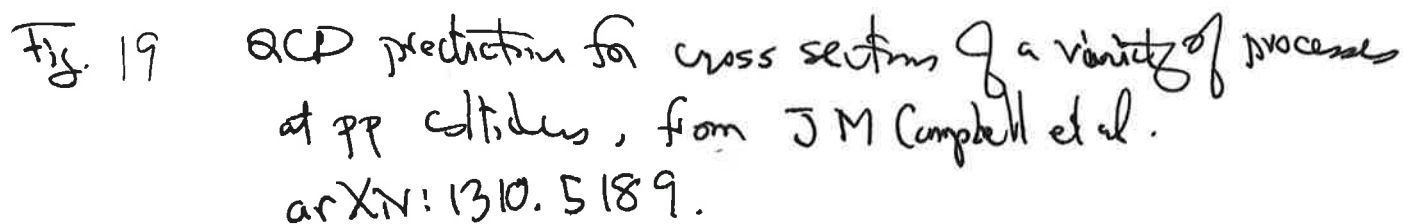 Fig. 19 QCD prediction for cross sections of a variety of processes
at pp colliders, from J M Campbell et al.
arXiv: 1310.5189.